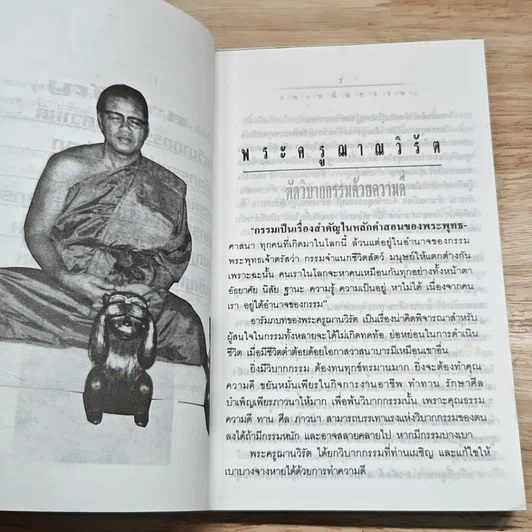 7
พระครูฌาณวิรัต
ตัดวิบากกรรมด้วยความดี
"กรรมเป็นเรื่องสำคัญในหลักคำสอนของพระพุทธ-
ศาสนา ทุกคนที่เกิดมาในโลกนี้ ล้วนแต่อยู่ในอำนาจของกรรม
พระพุทธเจ้าตรัสว่า กรรมจำแนกชีวิตสัตว์ มนุษย์ให้แตกต่างกัน
เพราะฉะนั้น คนเราในโลกจะหาคนเหมือนกันทุกอย่างทั้งหน้าตา
อัธยาศัย นิสัย ฐานะ ความรู้ ความเป็นอยู่ หาไม่ได้ เนื่องจากคน
เรา อยู่ใต้อำนาจของกรรม"
อารัมภบทของพระครูฌานวิรัต เป็นเรื่องน่าคิดพิจารณาสำหรับ
ผู้สนใจในกรรมทั้งหลายจะได้ไม่เกิดทดท้อ ย่อหย่อนในการดำเนิน
ชีวิต เมื่อมีชีวิตต่ำต้อยด้อยโอกาสวาสนาบารมีเหมือนเขาอื่น
ยิ่งมีวิบากกรรม ต้องทนทุกข์ทรมานมาก ยิ่งจะต้องทำคุณ
ความดี ขยันหมั่นเพียรในกิจการงานอาชีพ ทำทาน รักษาศีล
บำเพ็ญเพียรภาวนาให้มาก เพื่อพ้นวิบากกรรมนั้น เพราะคุณธรรม
ความดี ทาน ศีล ภาวนา สามารถบรรเทาแรงแห่งวิบากกรรมของตน
ลงได้ถ้ามีกรรมหนัก และอาจสลายคลายไป หากมีกรรมบางเบา
พระครูฌานวิรัต ได้ยกวิบากกรรมที่ท่านเผชิญ และแก้ไขให้
เบาบางจางหายได้ด้วยการทำความดี